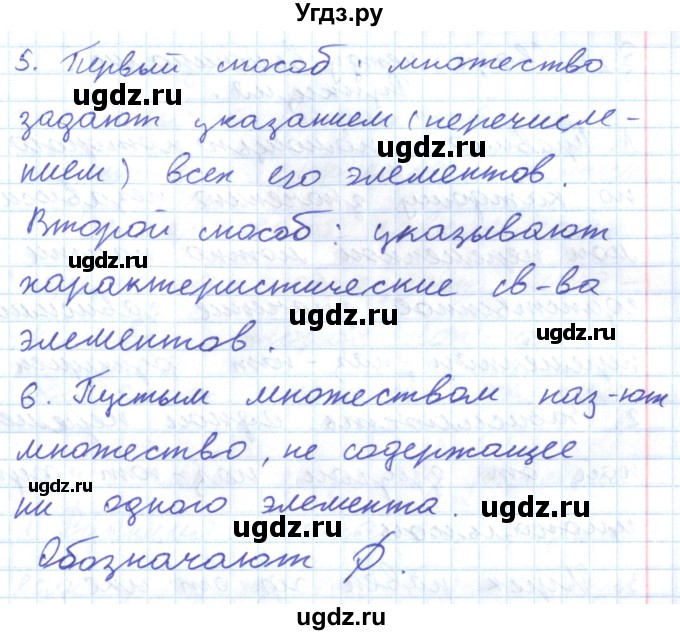 Угдз.ру
5. Первый способ: множество
ugdz.ru
задают указанием (перечисле-
ugdz.ru
нием) всех его элементов.
Второй способ: указывают
ugdz.ru
характеристические св-ва
ugdz.ru
элементов.
6. Пустым множеством наз-ют
множество, не содержащее
ugdz.ru
ни одного элемента.
ugdz.ru
ugdz.ru
Обозначают ∅.
ugdz.ru